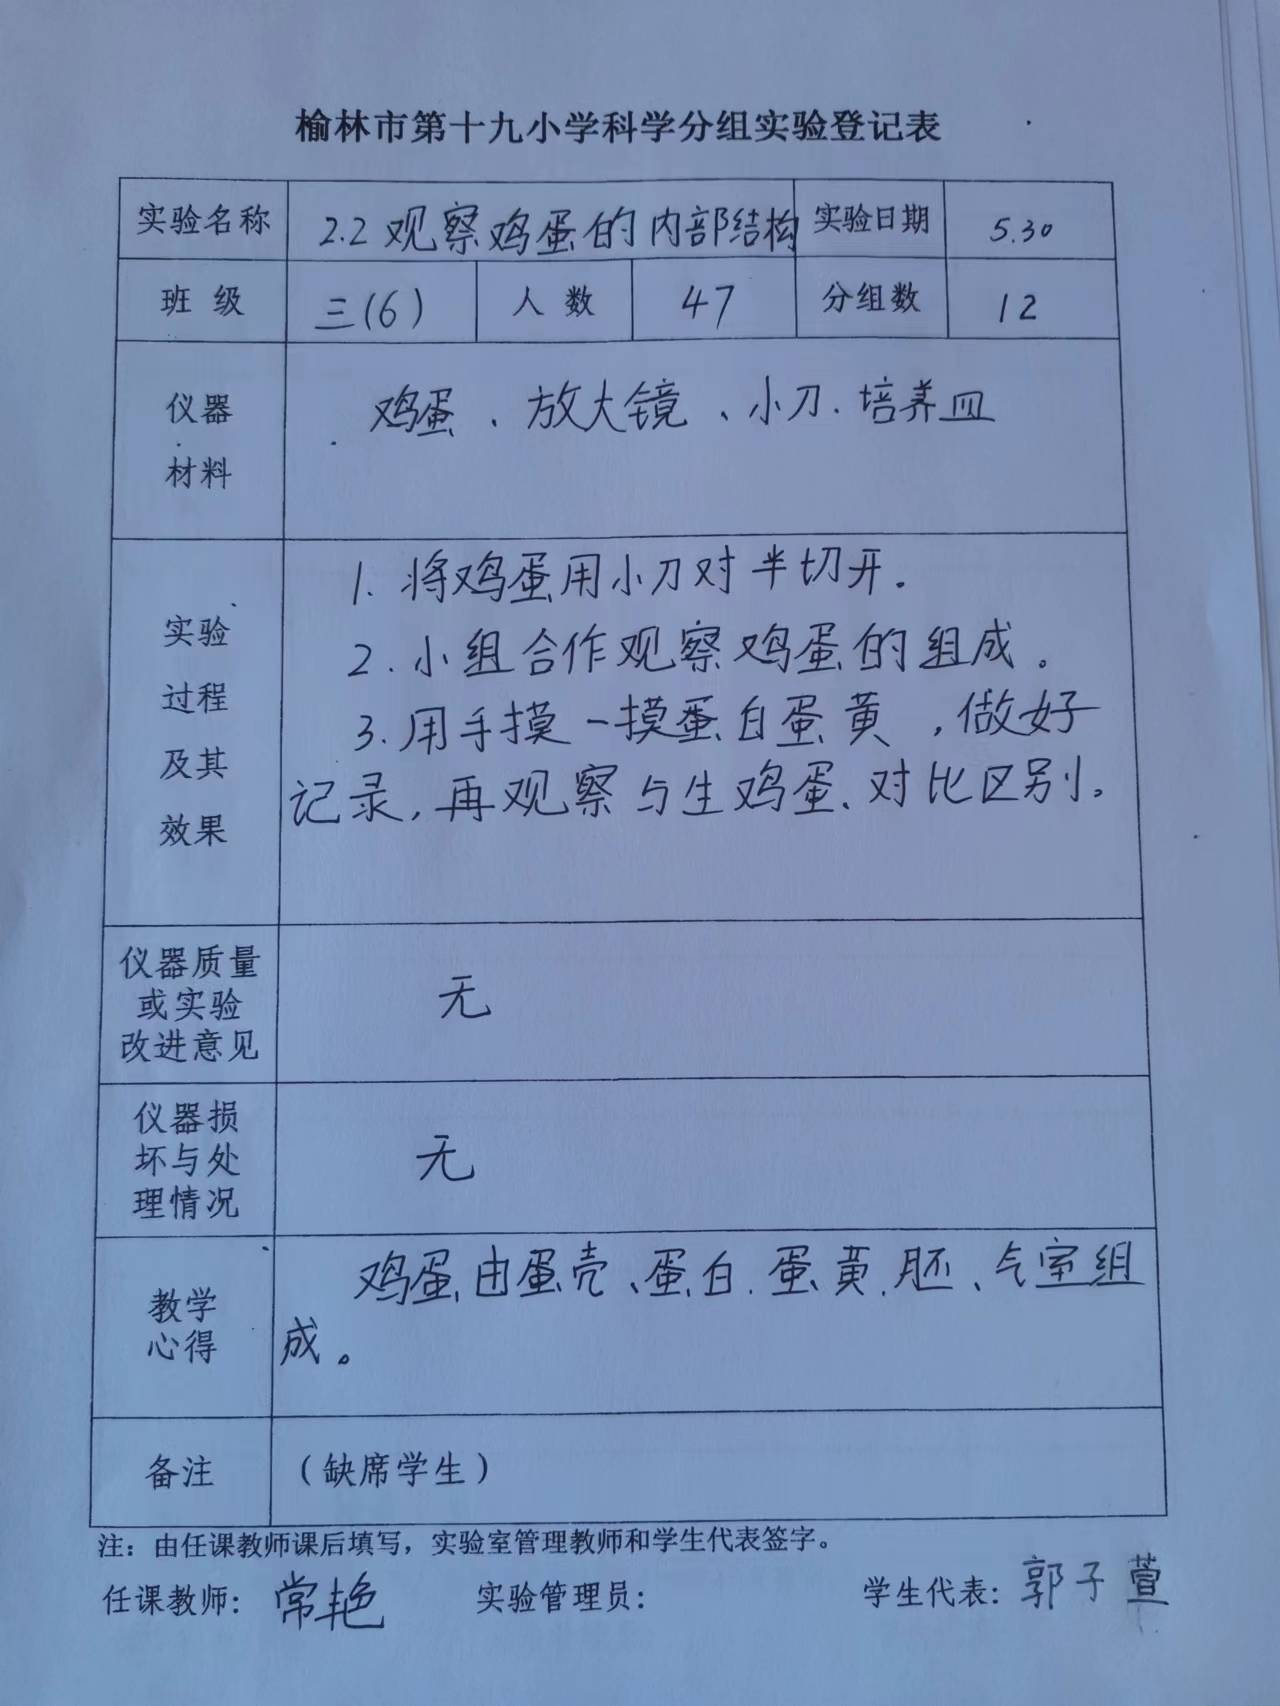 榆林市第十九小学科学分组实验登记表
实验名称 2.2观察鸡蛋的内部结构 实验日期 5.30
班 级 三(6) 人 数 47 分组数 12
仪器
材料
鸡蛋、放大镜、小刀、培养皿
实验
过程
及其
效果
1. 将鸡蛋用小刀对半切开.
2. 小组合作观察鸡蛋的组成。
3. 用手摸一摸蛋白蛋黄,做好
记录,再观察与生鸡蛋、对比区别。
仪器质量
或实验
改进意见
无
仪器损
坏与处
理情况
无
教学
心得
鸡蛋由蛋壳、蛋白、蛋黄、胚、气室组
成。
备注 (缺席学生)
注:由任课教师课后填写,实验室管理教师和学生代表签字。
任课教师: 常艳 实验管理员: 学生代表: 郭子萱